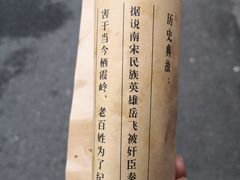 历史典故：
据说南宋民族英雄岳飞被奸臣秦
害于当今栖霞岭，老百姓为了纪